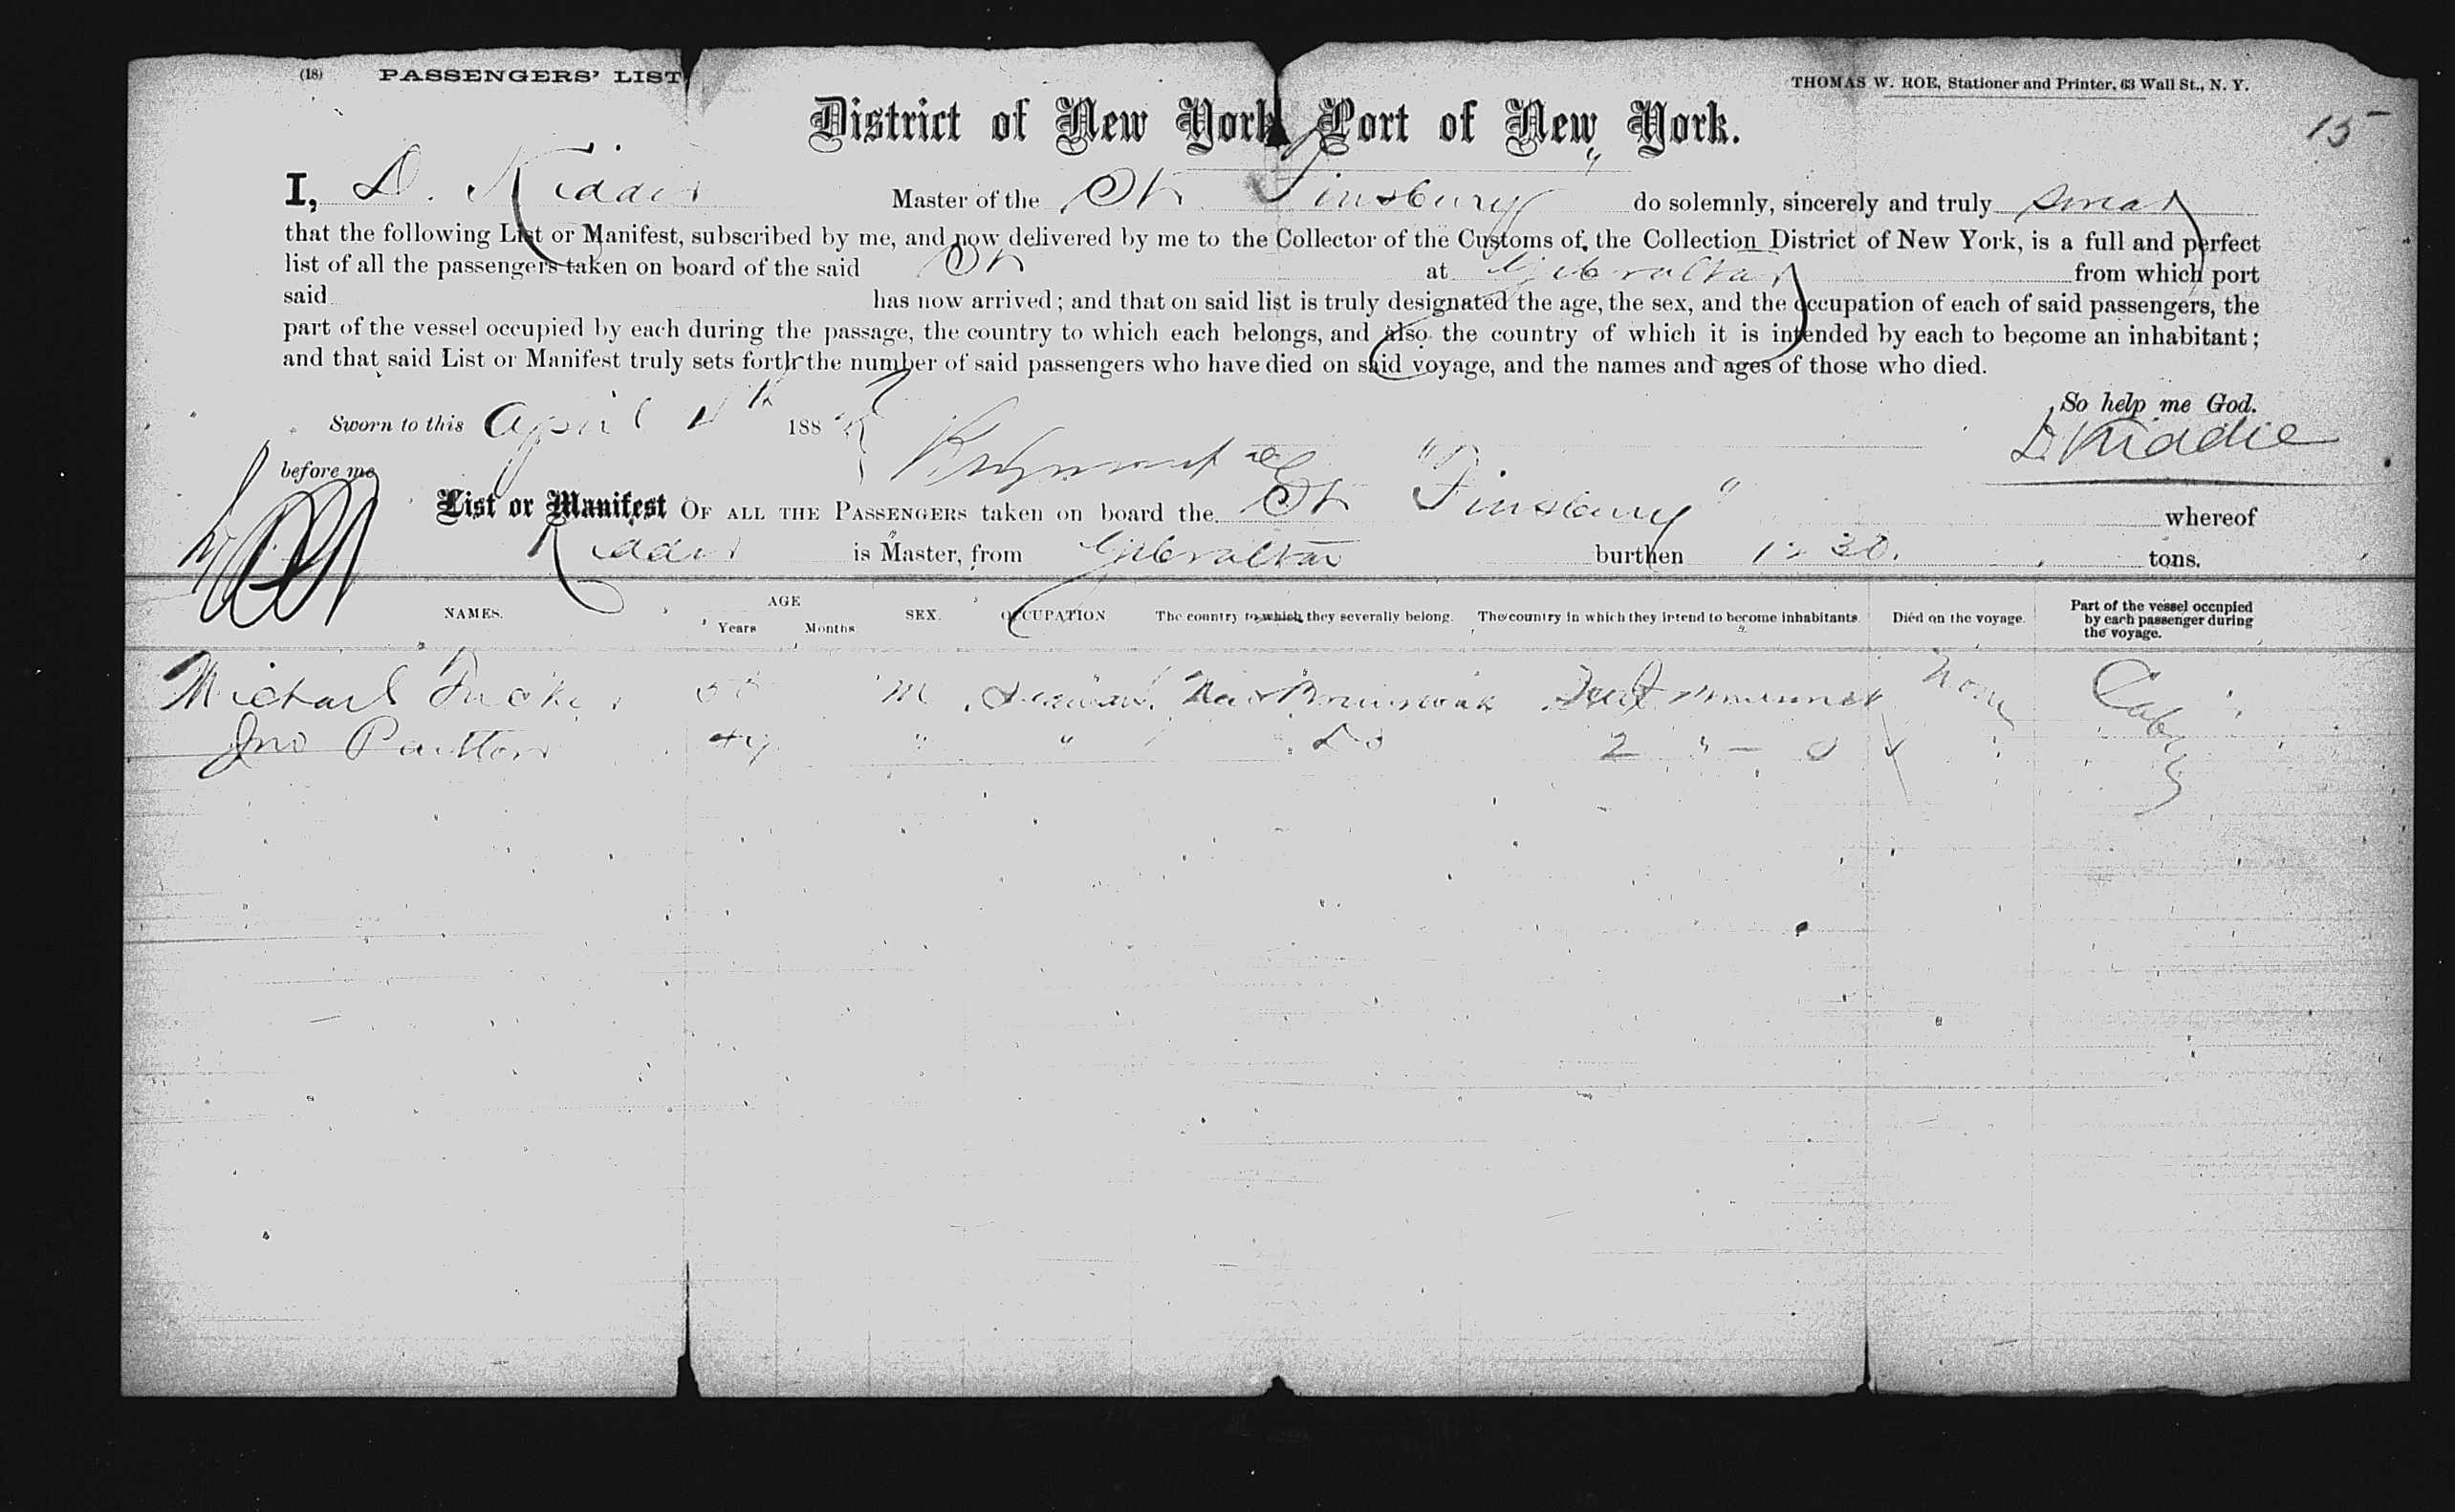 (18) PASSENGERS' LIST
THOMAS W. ROE, Stationer and Printer, 63 Wall St., N. Y.
District of New York Port of New York.
15
I, D. Kiddie Master of the Str "Finsbury" do solemnly, sincerely and truly swear
that the following List or Manifest, subscribed by me, and now delivered by me to the Collector of the Customs of the Collection District of New York, is a full and perfect
list of all the passengers taken on board of the said Str at Gibraltar from which port
said has now arrived; and that on said list is truly designated the age, the sex, and the occupation of each of said passengers, the
part of the vessel occupied by each during the passage, the country to which each belongs, and also the country of which it is intended by each to become an inhabitant;
and that said List or Manifest truly sets forth the number of said passengers who have died on said voyage, and the names and ages of those who died.
So help me God.
Sworn to this April 188
D Kiddie
before me
List or Manifest OF ALL THE PASSENGERS taken on board the Str "Finsbury" whereof
Kiddie is Master, from Gibraltar burthen 1230. tons.
NAMES. AGE Years Months SEX. OCCUPATION The country to which they severally belong. The country in which they intend to become inhabitants. Died on the voyage. Part of the vessel occupied by each passenger during the voyage.
Michael Tucker M New Brunswick New Brunswick None Cab
Jno Patton 49 " " Do